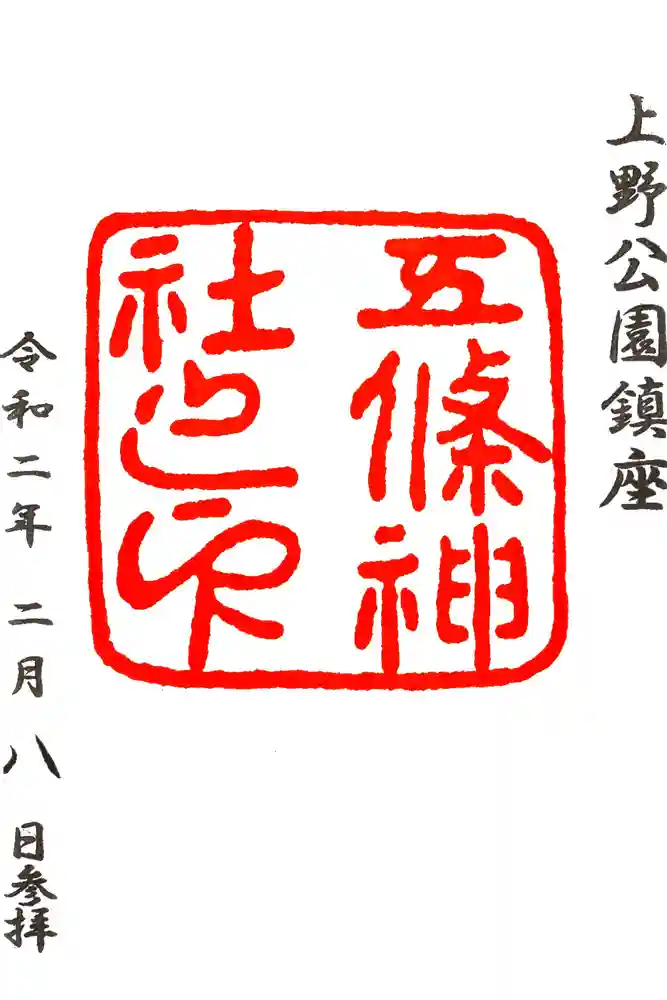 上野公園鎮座
五條神
社之印
令和二年 二月 八 日参拝